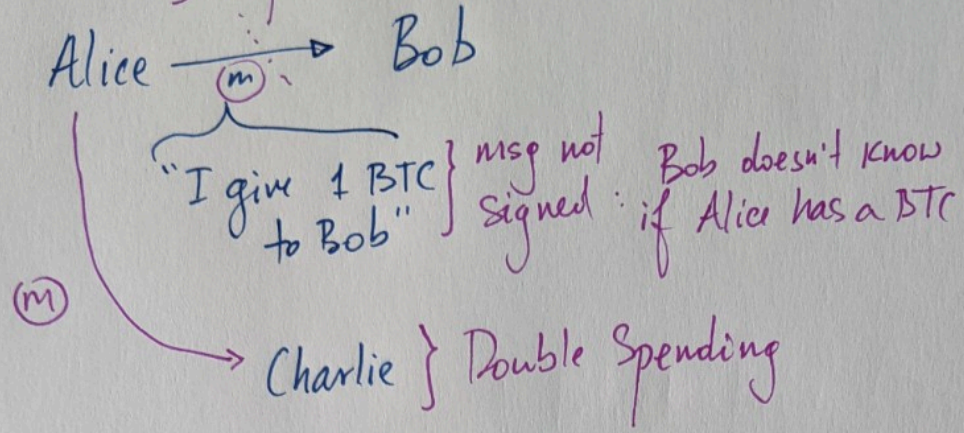 Alice → Bob
m
"I give 1 BTC
to Bob"
} msg not
signed :
Bob doesn't know
if Alice has a BTC
m
Charlie } Double Spending